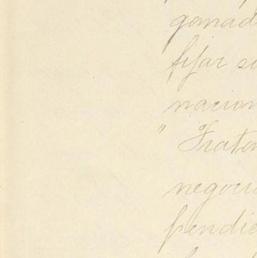 ganad
fijar s
nacion
" Tratan
negoci
pendie